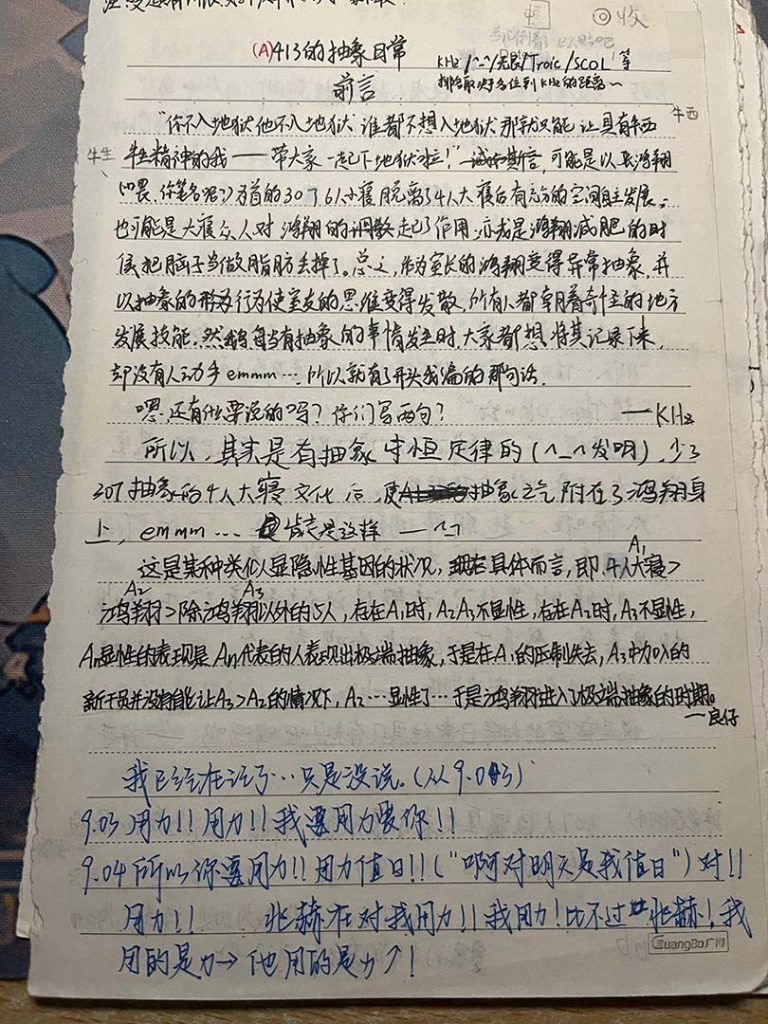 ◎收
(A)413的抽象日常
KHz/^-^/良仔/Troic/SCOL 等
排名取决于各位到KHz的距离~
前言
牛西
“你不入地狱他不入地狱 谁都不想入地狱 那就只能让具有牛西
牛生
牛生精神的我——带大家一起下地狱啦!”——诚如斯言,可能是以 鸿翔
为首的307 6人小寝脱离了4人大寝后有充分的空间自主发展,
也可能是大寝众人对鸿翔的调教起了作用,亦或是鸿翔减肥的时
候把脑子当做脂肪丢掉了。总之,作为室长的鸿翔变得异常抽象,并
以抽象的行为使室友的思维变得发散,所有人都朝着奇怪的地方
发展技能。然而每当有抽象的事情发生时,大家都想将其记录下来,
却没有人动手emmm…所以就有了开头我编的那句话。
嗯,还有什么要说的吗?你们写两句? ——KHz
所以,其实是有抽象守恒定律的(^-^发明),少了
307抽象的4人大寝文化后,使抽象之气附在了鸿翔身
上,emmm… 肯定是这样 —^-^
这是某种类似显隐性基因的状况,具体而言,即4人大寝>
A1
A2 A3
鸿翔>除鸿翔以外的5人,存在A1时,A2A3不显性,存在A2时,A3不显性,
An显性的表现是An代表的人表现出极端抽象,于是在A1的压制失去,A3中加入的
新干员并没有能让A3>A2的情况下,A2…显性了…于是鸿翔进入了极端抽象的时期。
——良仔
我已经在记了…只是没说。(从9.03)
9.03 用力!!用力!!我要用力爱你!!
9.04 所以你要用力!!用力值日!!(“啊对明天是我值日”)对!!
用力!! 兆赫在对我用力!!我用力!比不过兆赫!我
用的是力→他用的是力↗!
GuangBo广博